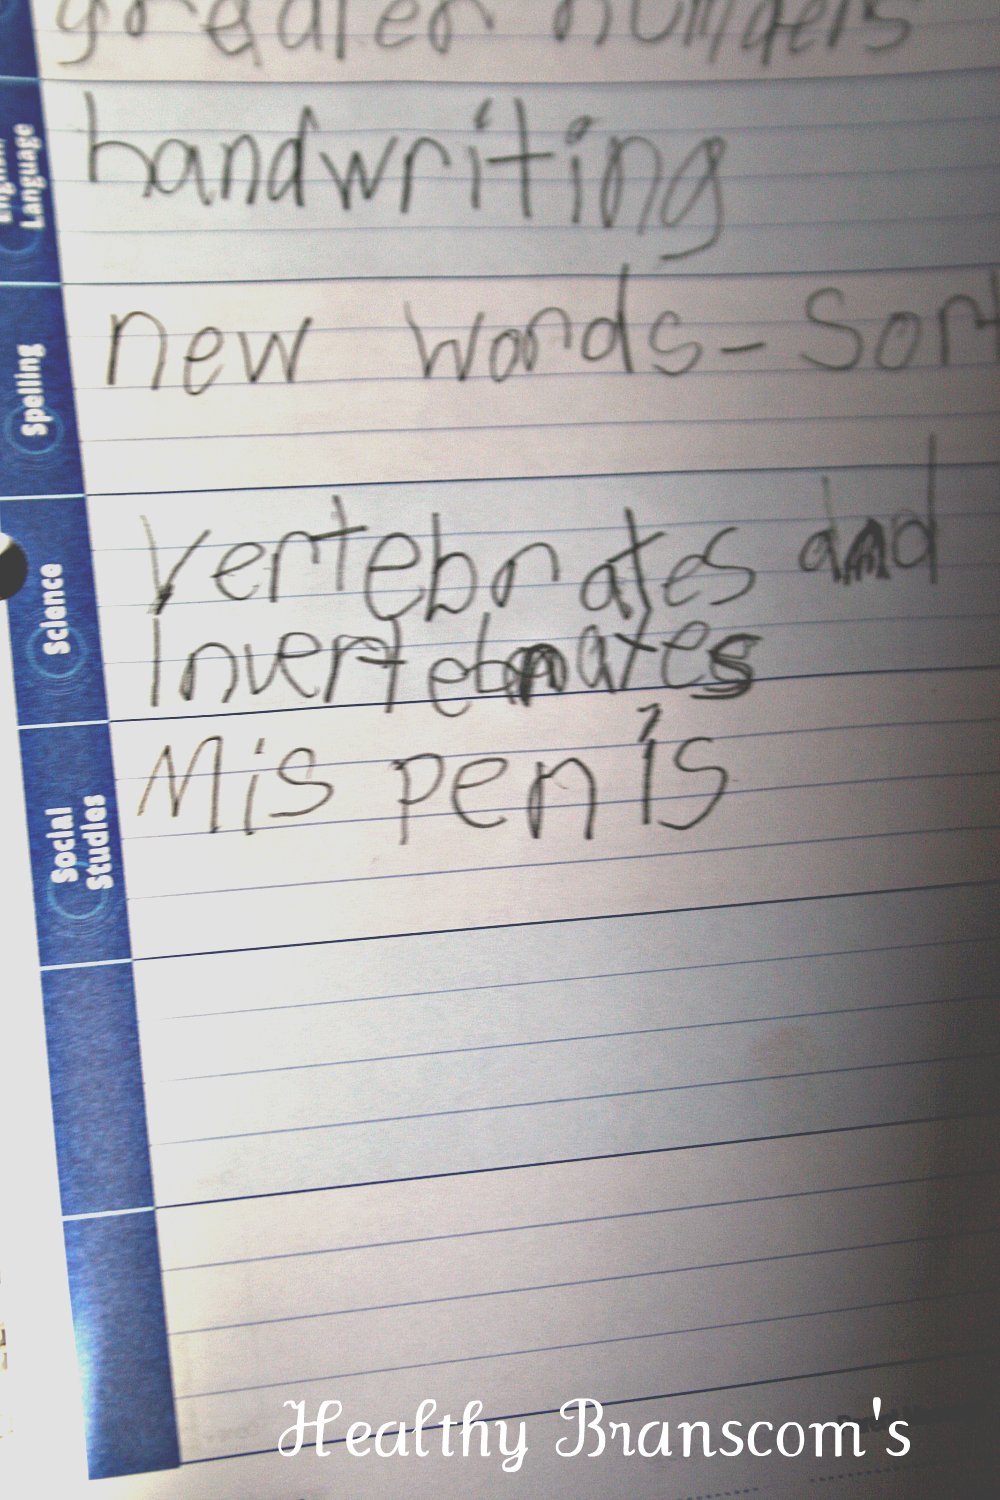 greater numbers
English
Language
handwriting
Spelling
new words - Sort
Science
Vertebrates and
Invertebrates
Social
Studies
Mis penis
Healthy Branscom's